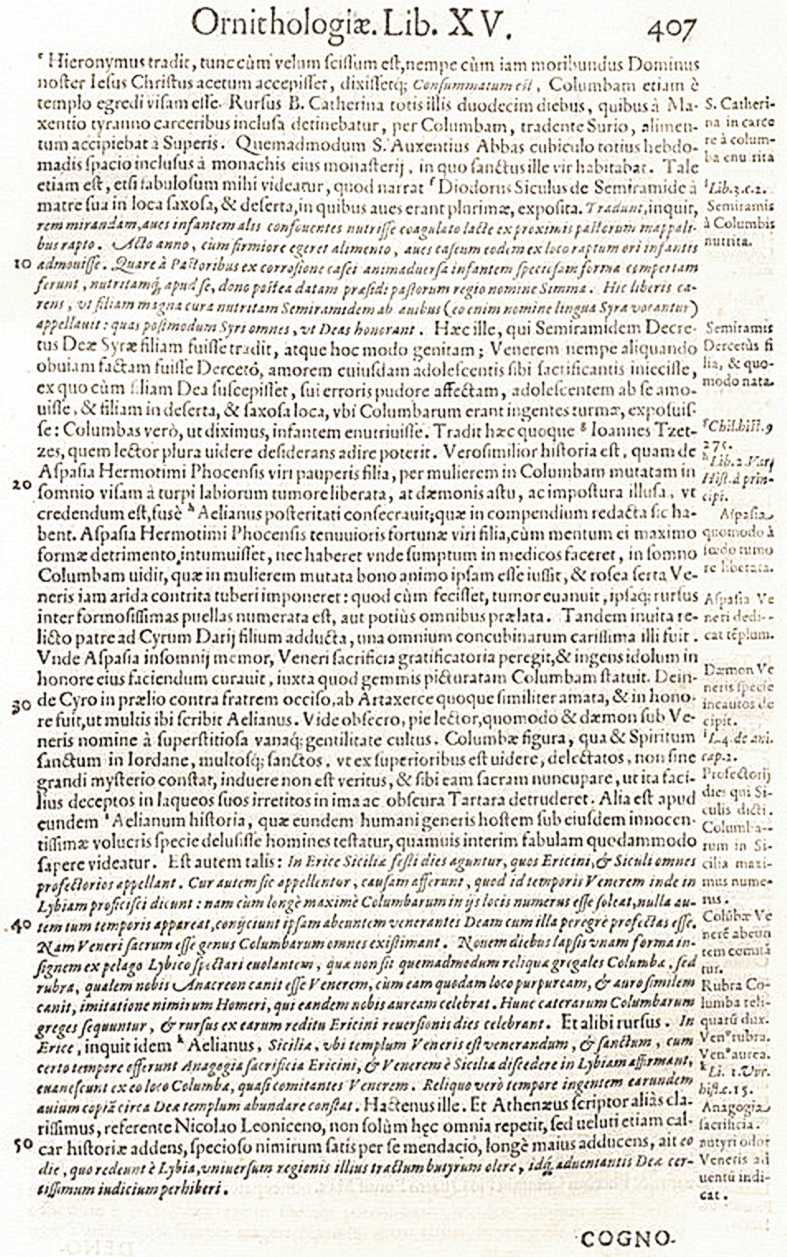 Ornithologiæ. Lib. XV. 407
e Hieronymus tradit, tunc cùm velum scissum est, nempe cùm iam moribundus Dominus
noster Iesus Christus acetum accepisset, dixissetq; Consummatum est, Columbam etiam è
templo egredi visam esse. Rursus B. Catherina totis illis duodecim diebus, quibus à Ma-
xentio tyranno carceribus inclusa detinebatur, per Columbam, tradente Surio, alimen-
tum accipiebat à Superis. Quemadmodum S. Auxentius Abbas cubiculo totius hebdo-
madis spacio inclusus à monachis eius monasterij, in quo sanctus ille vir habitabat. Tale
etiam est, etsi fabulosum mihi videatur, quod narrat f Diodorus Siculus de Semiramide à
matre sua in loca saxosa, & deserta, in quibus aues erant plurimæ, exposita. Tradunt, inquit,
rem mirandam, aues infantem alis confouentes nutrisse coagulato lacte ex proximis pastorum mappali-
bus rapto. Acto anno, cùm firmiore egeret alimento, aues caseum eodem ex loco raptum ori infantis
10 admouisse. Quare à Pastoribus ex corrosione casei animaduersa infantem speciosam forma compertam
ferunt, nutritamq; apud se, dono postea datam præsidi pastorum regio nomine Simma. Hic liberis ca-
rens, vt filiam magna cura nutritam Semiramidem ab auibus (eo enim nomine lingua Syra vocantur)
appellauit: quas postmodum Syri omnes, vt Deas honorant. Hæc ille, qui Semiramidem Decre-
tus Deæ Syræ filiam fuisse tradit, atque hoc modo genitam; Venerem nempe aliquando
obuiam factam fuisse Dercetò, amorem cuiusdam adolescentis sibi sacrificantis iniecisse,
ex quo cùm filiam Dea suscepisset, sui erroris pudore affectam, adolescentem ab se amo-
uisse, & filiam in deserta, & saxosa loca, vbi Columbarum erant ingentes turmæ, exposuis-
se: Columbas verò, ut diximus, infantem enutriuisse. Tradit hæc quoque g Ioannes Tzet-
zes, quem lector plura uidere desiderans adire poterit. Verosimilior historia est, quam de
Aspasia Hermotimi Phocensis viri pauperis filia, per mulierem in Columbam mutatam in
20 somnio visam à turpi labiorum tumore liberata, at dæmonis astu, ac impostura illusa, vt
credendum est, fusè h Aelianus posteritati consecrauit; quæ in compendium redacta sic ha-
bent. Aspasia Hermotimi Phocensis tenuioris fortunæ viri filia, cùm mentum ei maximo
formæ detrimento, intumuisset, nec haberet vnde sumptum in medicos faceret, in somno
Columbam uidit, quæ in mulierem mutata bono animo ipsam esse iussit, & rosea serta Ve-
neris iam arida contrita tuberi imponeret: quod cùm fecisset, tumor euanuit, ipsaq; rursus
inter formosissimas puellas numerata est, aut potiùs omnibus prælata. Tandem inuita re-
licto patre ad Cyrum Darij filium adducta, una omnium concubinarum carissima illi fuit.
Vnde Aspasia insomnij memor, Veneri sacrificia gratificatoria peregit, & ingens idolum in
honore eius faciendum curauit, iuxta quod gemmis picturatam Columbam statuit. Dein-
30 de Cyro in prælio contra fratrem occiso, ab Artaxerce quoque similiter amata, & in hono-
re fuit, ut multis ibi scribit Aelianus. Vide obsecro, pie lector, quomodo & dæmon sub Ve-
neris nomine à superstitiosa vanaq; gentilitate cultus. Columbæ figura, qua & Spiritum
sanctum in Iordane, multosq; sanctos. vt ex superioribus est uidere, delectatos, non sine
grandi mysterio constat, induere non est veritus, & sibi eam sacram nuncupare, ut ita faci-
lius deceptos in laqueos suos irretitos in ima ac obscura Tartara detruderet. Alia est apud
eundem i Aelianum historia, quæ eundem humani generis hostem sub eiusdem innocen-
tissimæ volucris specie delusisse homines testatur, quamuis interim fabulam quodammodo
sapere videatur. Est autem talis: In Erice Siciliæ festi dies aguntur, quos Ericini, & Siculi omnes
profectorios appellant. Cur autem sic appellentur, causam afferunt, quod id temporis Venerem inde in
Lybiam proficisci dicunt: nam cùm longè maximè Columbarum in ijs locis numerus esse soleat, nulla au-
40 tem tum temporis appareat, conijciunt ipsam abeuntem venerantes Deam cum illa peregrè profectas esse.
Nam Veneri sacrum esse genus Columbarum omnes existimant. Nouem diebus lapsis vnam forma in-
signem ex pelago Lybico spectari euolantem, quæ non sit quemadmodum reliquæ gregales Columbæ, sed
rubra, qualem nobis Anacreon canit esse Venerem, cùm eam quodam loco purpuream, & auro similem
canit, imitatione nimirum Homeri, qui eandem nobis auream celebrat. Hunc cæterarum Columbarum
greges sequuntur, & rursus ex earum reditu Ericini reuersionis dies celebrant. Et alibi rursus. In
Erice, inquit idem k Aelianus, Sicilia, vbi templum Veneris est venerandum, & sanctum, cum
certo tempore efferunt Anagogia sacrificia Ericini, & Venerem è Sicilia discedere in Lybiam affirmant,
euanescunt ex eo loco Columbæ, quasi comitantes Venerem. Reliquo verò tempore ingentem earundem
auium copiã circa Deæ templum abundare constat. Hactenus ille. Et Athenæus scriptor aliàs cla-
rissimus, referente Nicolao Leoniceno, non solùm hęc omnia repetit, sed ueluti etiam cal-
50 car historiæ addens, specioso nimirum satis per se mendaciò, longè maius adducens, ait eo
die, quo redeunt è Lybia, vniuersum regionis illius tractum butyrum olere, idq; aduentantis Deæ cer-
tissimum iudicium perhiberi.
S. Catheri-
na in carce
re à colum-
ba enutrita
f Lib. 3. c. 2.
Semiramis
à Columbis
nutrita.
Semiramis
Dercetùs fi
lia, & quo-
modo nata.
g Chil. hist. 9
275.
h Lib. 2. Var
Hist. à prin-
cipi.
Aspasia
quomodo à
fœdo tumo
re liberata.
Aspasia Ve
neri dedi-
cat tẽplum.
Dæmon Ve
neris specie
incautos de
cipit.
i L. 4. de ani.
cap. 2.
Profectorij
dies qui Si-
culis dicti.
Columba-
rum in Si-
cilia maxi-
mus nume-
rus.
Colũbæ Ve
nerẽ abeun
tem comitã
tur.
Rubra Co-
lumba reli-
quarũ dux.
Venꝰ rubra.
Venꝰ aurea.
k Li. 1. Var.
hist. c. 15.
Anagogia
sacrificia.
Butyri odor
Veneris ad
uentũ indi-
cat.
COGNO-